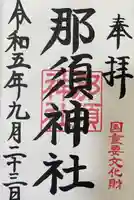 奉拝
国重要文化財
那須神社
令和五年九月二十三日